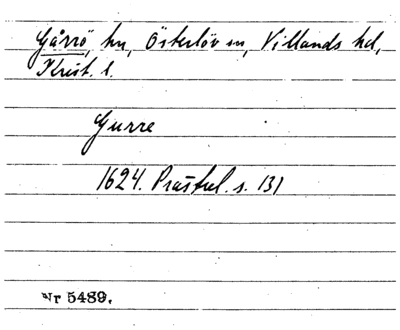 Gårrö, hn, Österlöv sn, Villands hd,
Krist. l.
Gurre
1624. Prästrel. s. 131
Nr 5489.